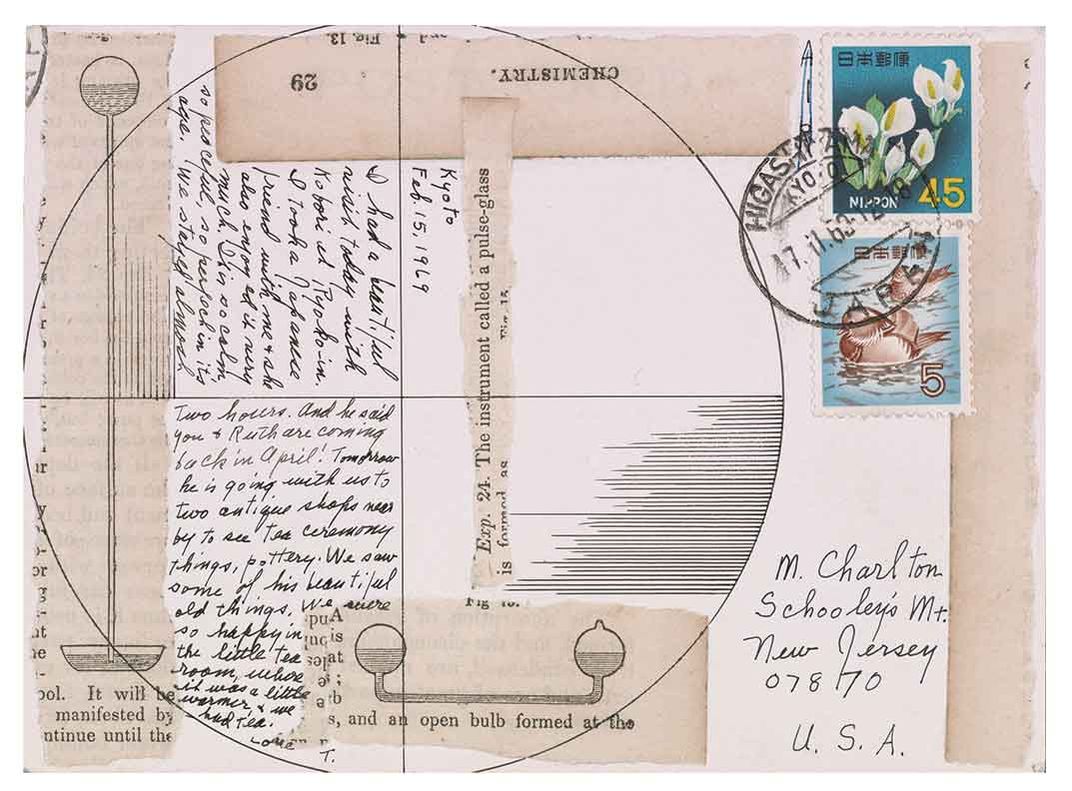 Fig. 13.
and
29
CHEMISTRY.
日本郵便
NIPPON 45
日本郵便
5
HIGASHIYAMA
KYOTO
17.II.69.12-18
JAPAN
Kyoto
Feb, 15, 1969
I had a beautiful
visit today with
Kobori at Ryoko-in.
I took a Japanese
friend with me & she
also enjoyed it very
much. It is so calm,
so peaceful, so perfect in its
age. We stayed almost
Two hours. And he said
you & Ruth are coming
back in April! Tomorrow
he is going with us to
two antique shops near
by to see Tea ceremony
things, pottery. We saw
some of his beautiful
old things. We were
so happy in
the little tea
room, where
it was a little
warmer, & we
had tea.
Love
T.
Exp. 24. The instrument called a pulse-glass
is formed as
M. Charlton
Schooley's Mt.
New Jersey
07870
U. S. A.
ool. It will be
manifested by
ntinue until the
s, and an open bulb formed at the